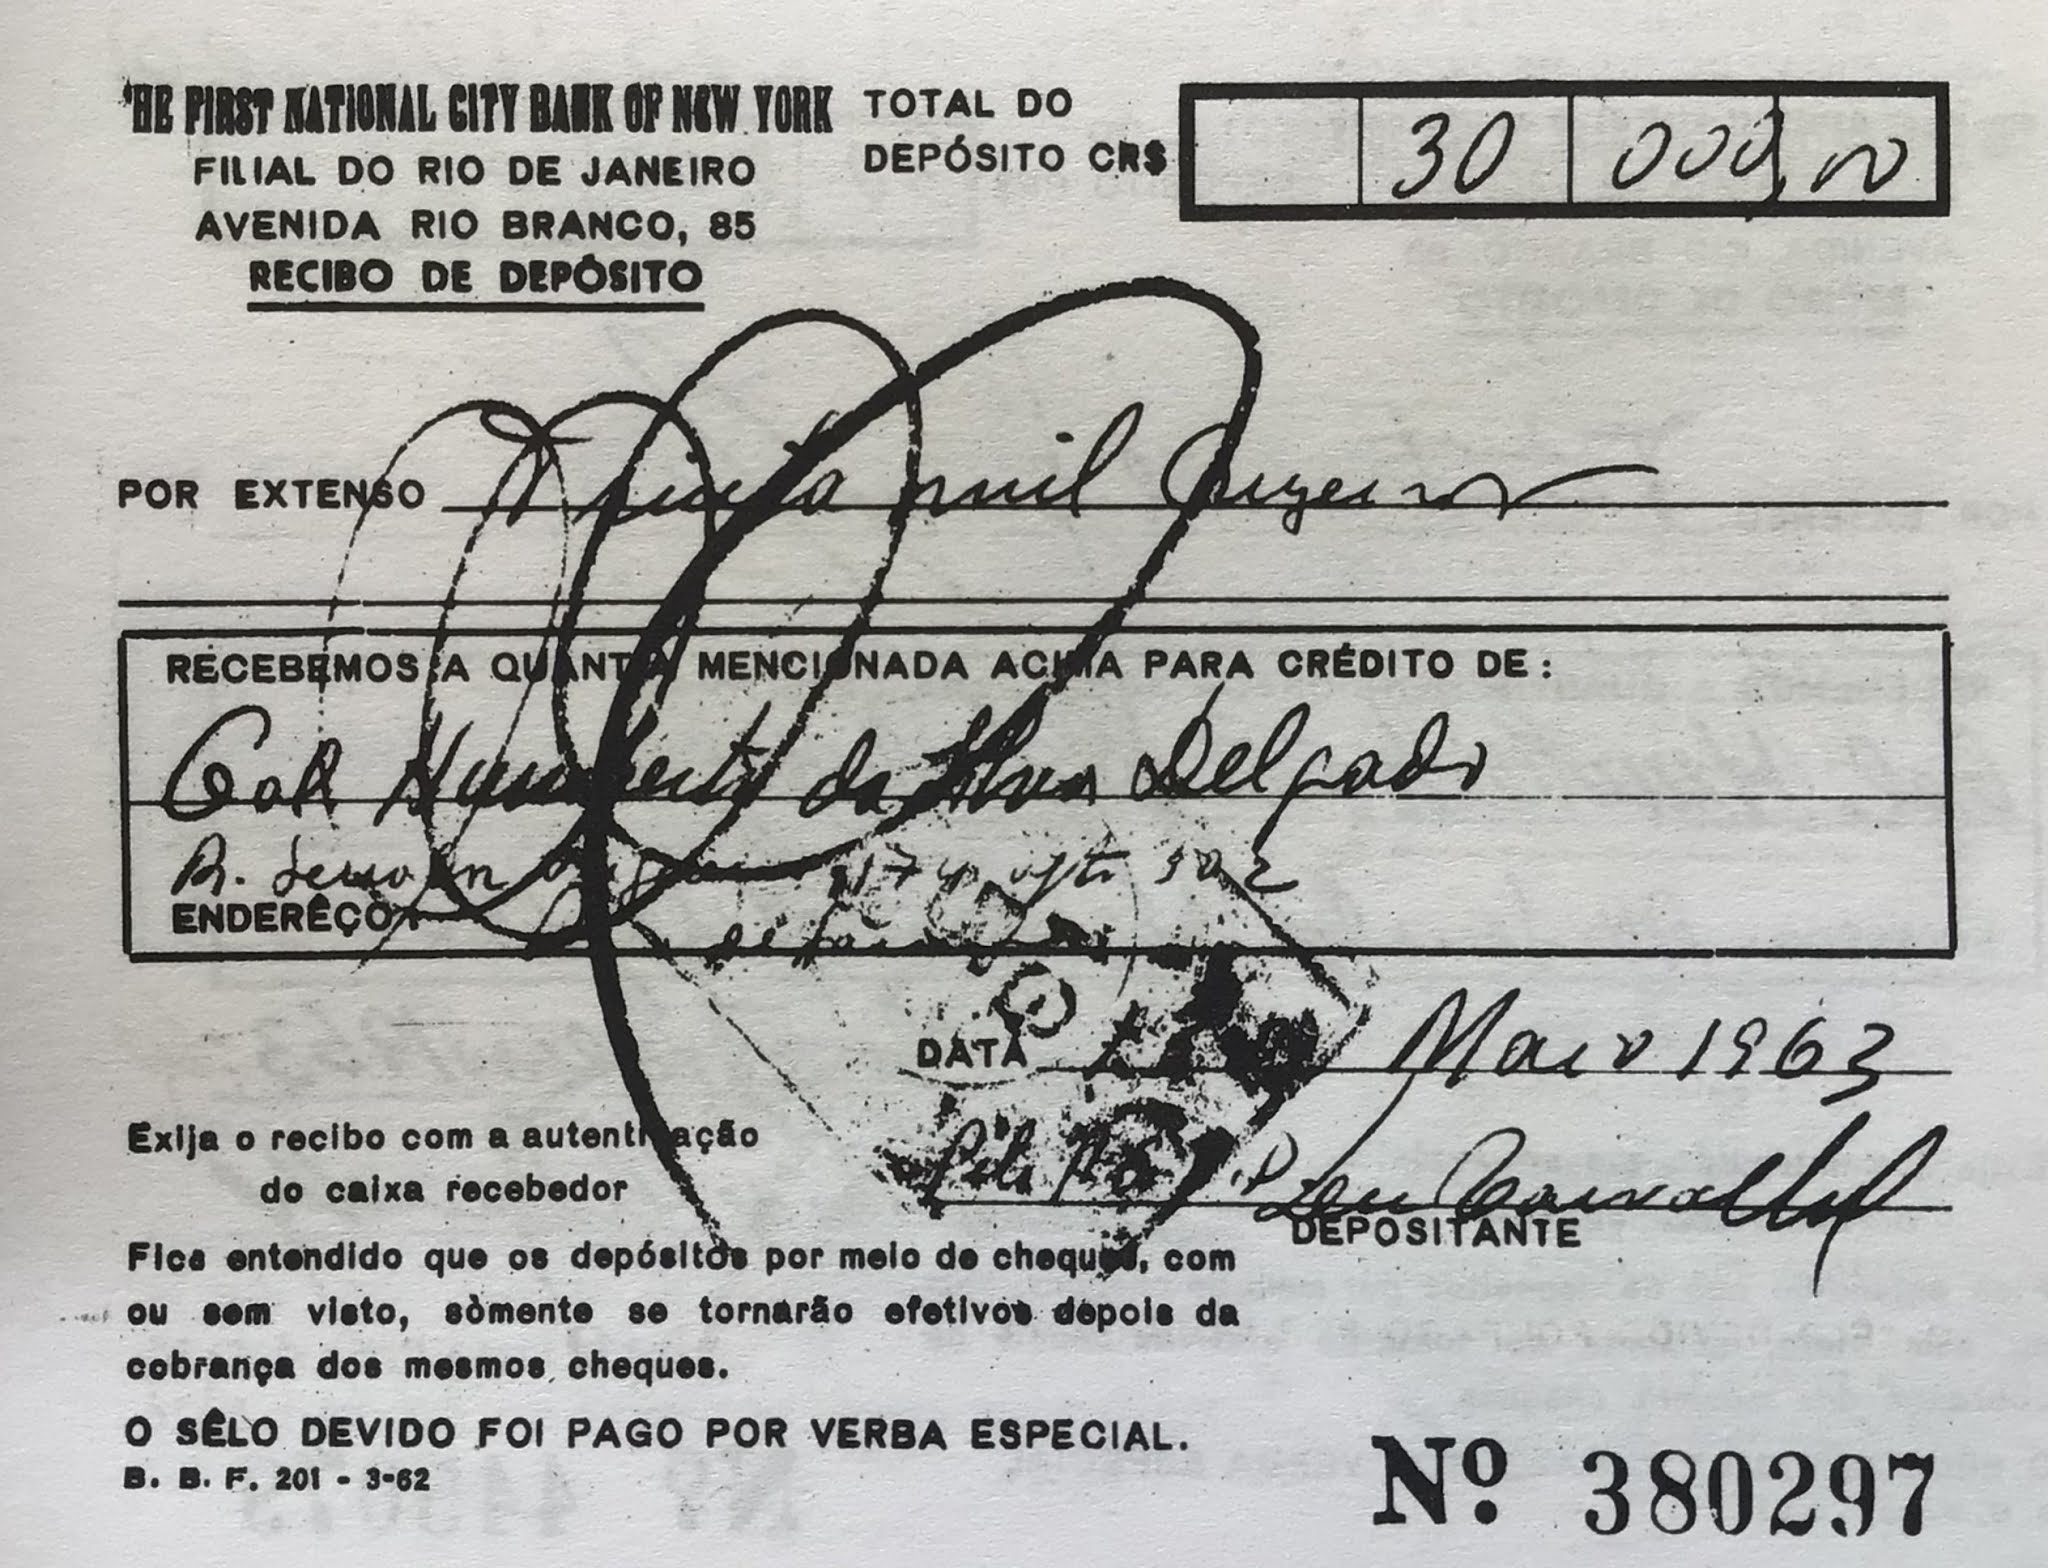 HE FIRST NATIONAL CITY BANK OF NEW YORK
FILIAL DO RIO DE JANEIRO
AVENIDA RIO BRANCO, 85
RECIBO DE DEPÓSITO
TOTAL DO
DEPÓSITO CR$ 30 000,00
POR EXTENSO Trinta mil Cruzeiros
RECEBEMOS A QUANTIA MENCIONADA ACIMA PARA CRÉDITO DE:
Gal Humberto da Silva Delgado
R. 174 apto 502
ENDERÊÇO:
DATA Maio 1963
Carvalho
DEPOSITANTE
Exija o recibo com a autenticação
do caixa recebedor
Fica entendido que os depósitos por meio de cheques, com
ou sem visto, sòmente se tornarão efetivos depois da
cobrança dos mesmos cheques.
O SÊLO DEVIDO FOI PAGO POR VERBA ESPECIAL.
B. B. F. 201 - 3-62
Nº 380297